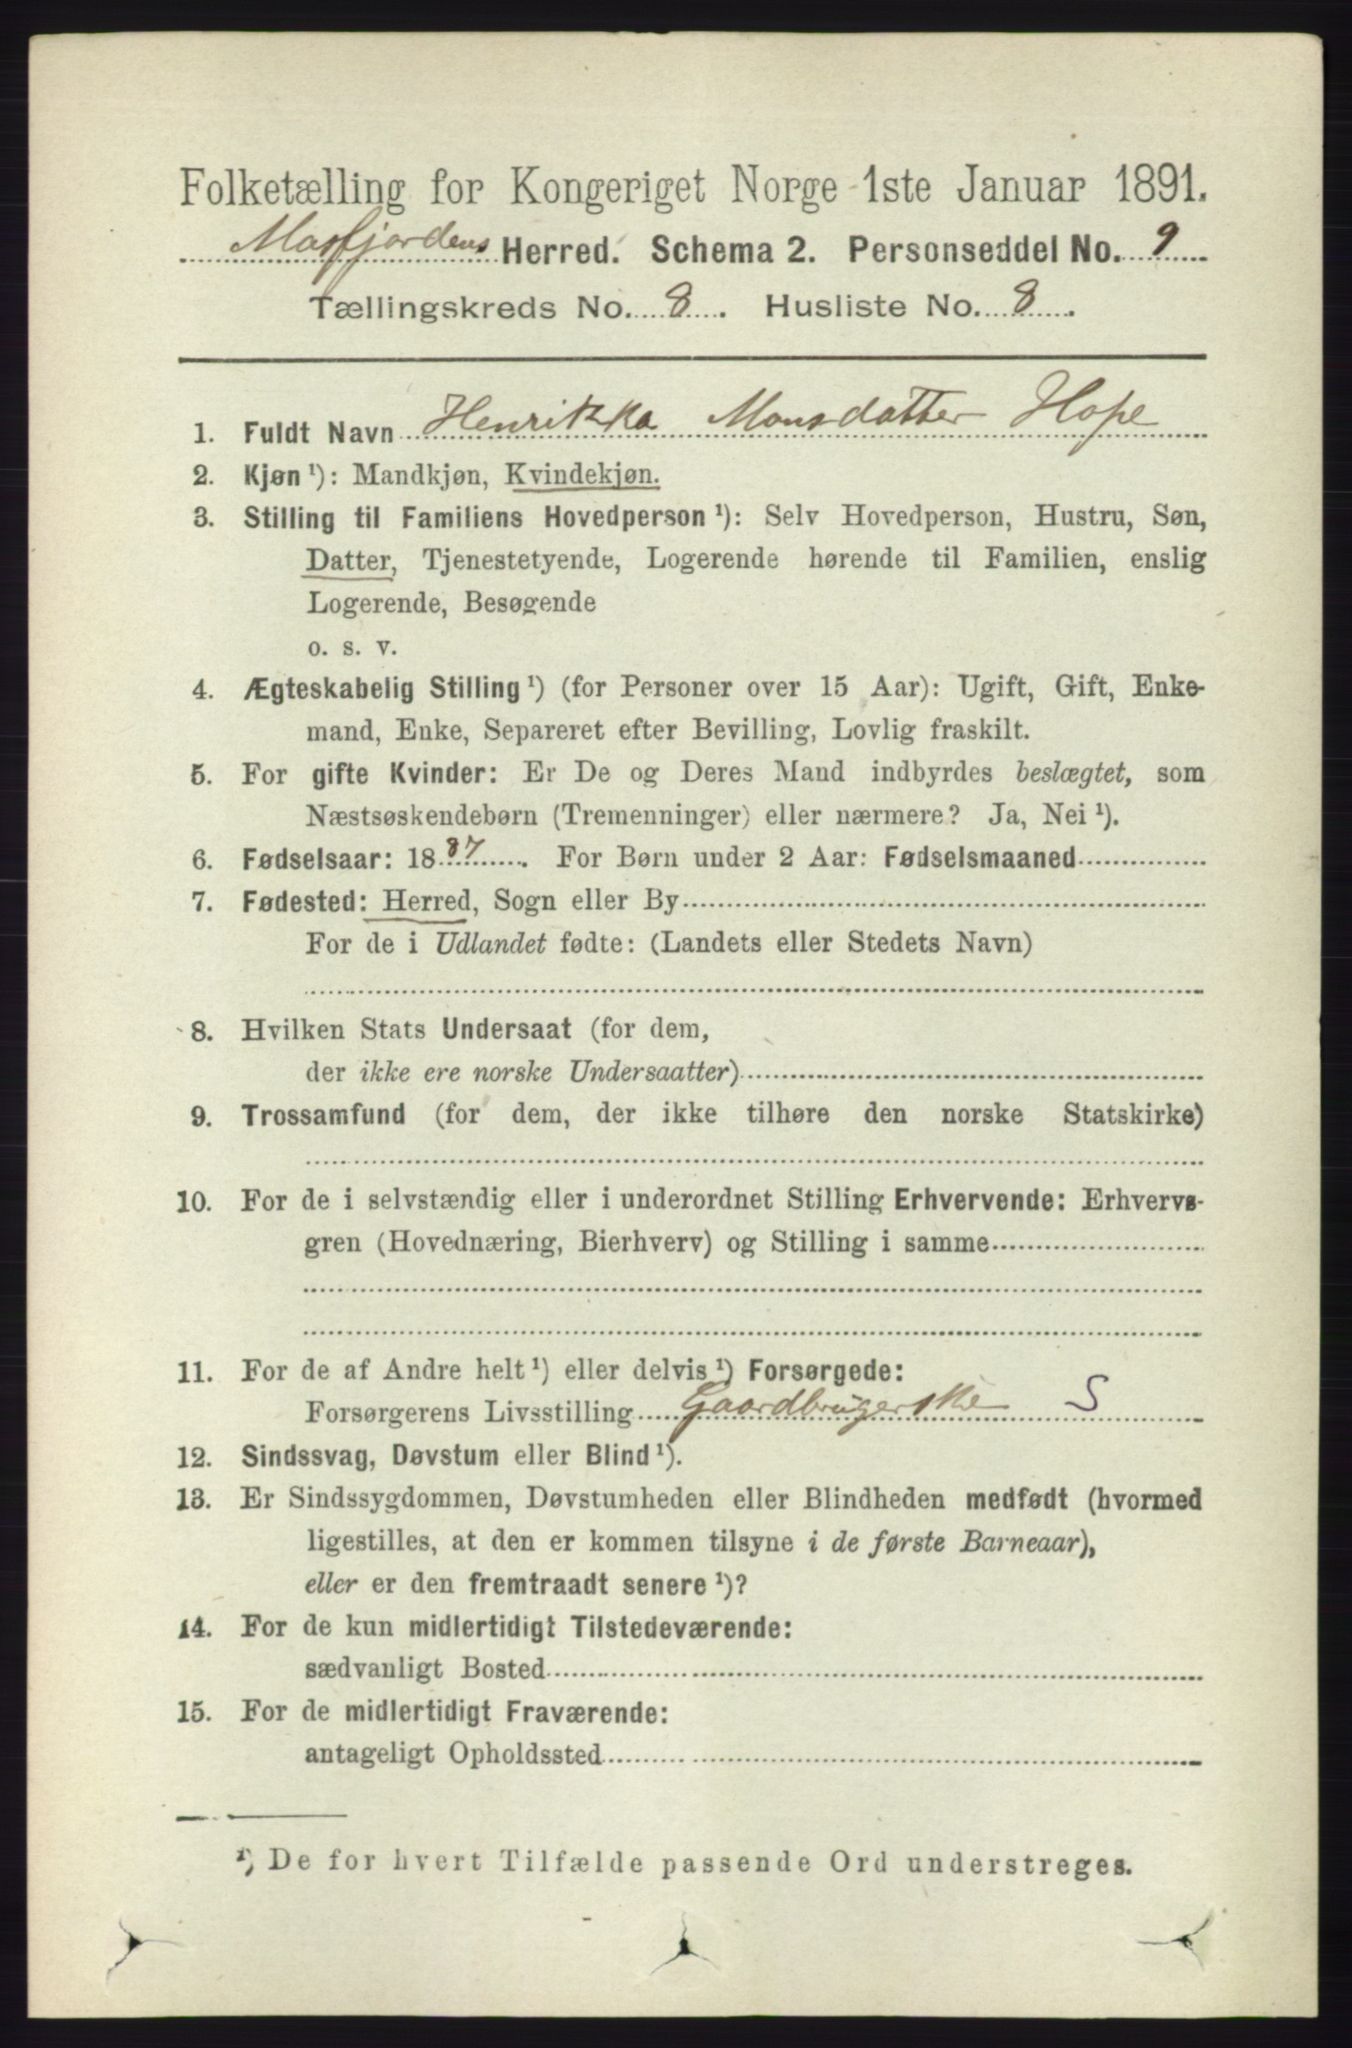 Folketælling for Kongeriget Norge 1ste Januar 1891.
Masfjordens Herred. Schema 2. Personseddel No. 9
Tællingskreds No. 8. Husliste No. 8.
1. Fuldt Navn Henrikka Monsdatter Hope
2. Kjøn ¹): Mandkjøn, Kvindekjøn.
3. Stilling til Familiens Hovedperson ¹): Selv Hovedperson, Hustru, Søn,
Datter, Tjenestetyende, Logerende hørende til Familien, enslig
Logerende, Besøgende
o. s. v.
4. Ægteskabelig Stilling ¹) (for Personer over 15 Aar): Ugift, Gift, Enke-
mand, Enke, Separeret efter Bevilling, Lovlig fraskilt.
5. For gifte Kvinder: Er De og Deres Mand indbyrdes beslægtet, som
Næstsøskendebørn (Tremenninger) eller nærmere? Ja, Nei ¹).
6. Fødselsaar: 1887. For Børn under 2 Aar: Fødselsmaaned
7. Fødested: Herred, Sogn eller By
For de i Udlandet fødte: (Landets eller Stedets Navn)
8. Hvilken Stats Undersaat (for dem,
der ikke ere norske Undersaatter)
9. Trossamfund (for dem, der ikke tilhøre den norske Statskirke)
10. For de i selvstændig eller i underordnet Stilling Erhvervende: Erhvervs-
gren (Hovednæring, Bierhverv) og Stilling i samme
11. For de af Andre helt ¹) eller delvis ¹) Forsørgede:
Forsørgerens Livsstilling Gaardbrugerske S
12. Sindssvag, Døvstum eller Blind ¹).
13. Er Sindssygdommen, Døvstumheden eller Blindheden medfødt (hvormed
ligestilles, at den er kommen tilsyne i de første Barneaar),
eller er den fremtraadt senere ¹)?
14. For de kun midlertidigt Tilstedeværende:
sædvanligt Bosted
15. For de midlertidigt Fraværende:
antageligt Opholdssted
¹) De for hvert Tilfælde passende Ord understreges.